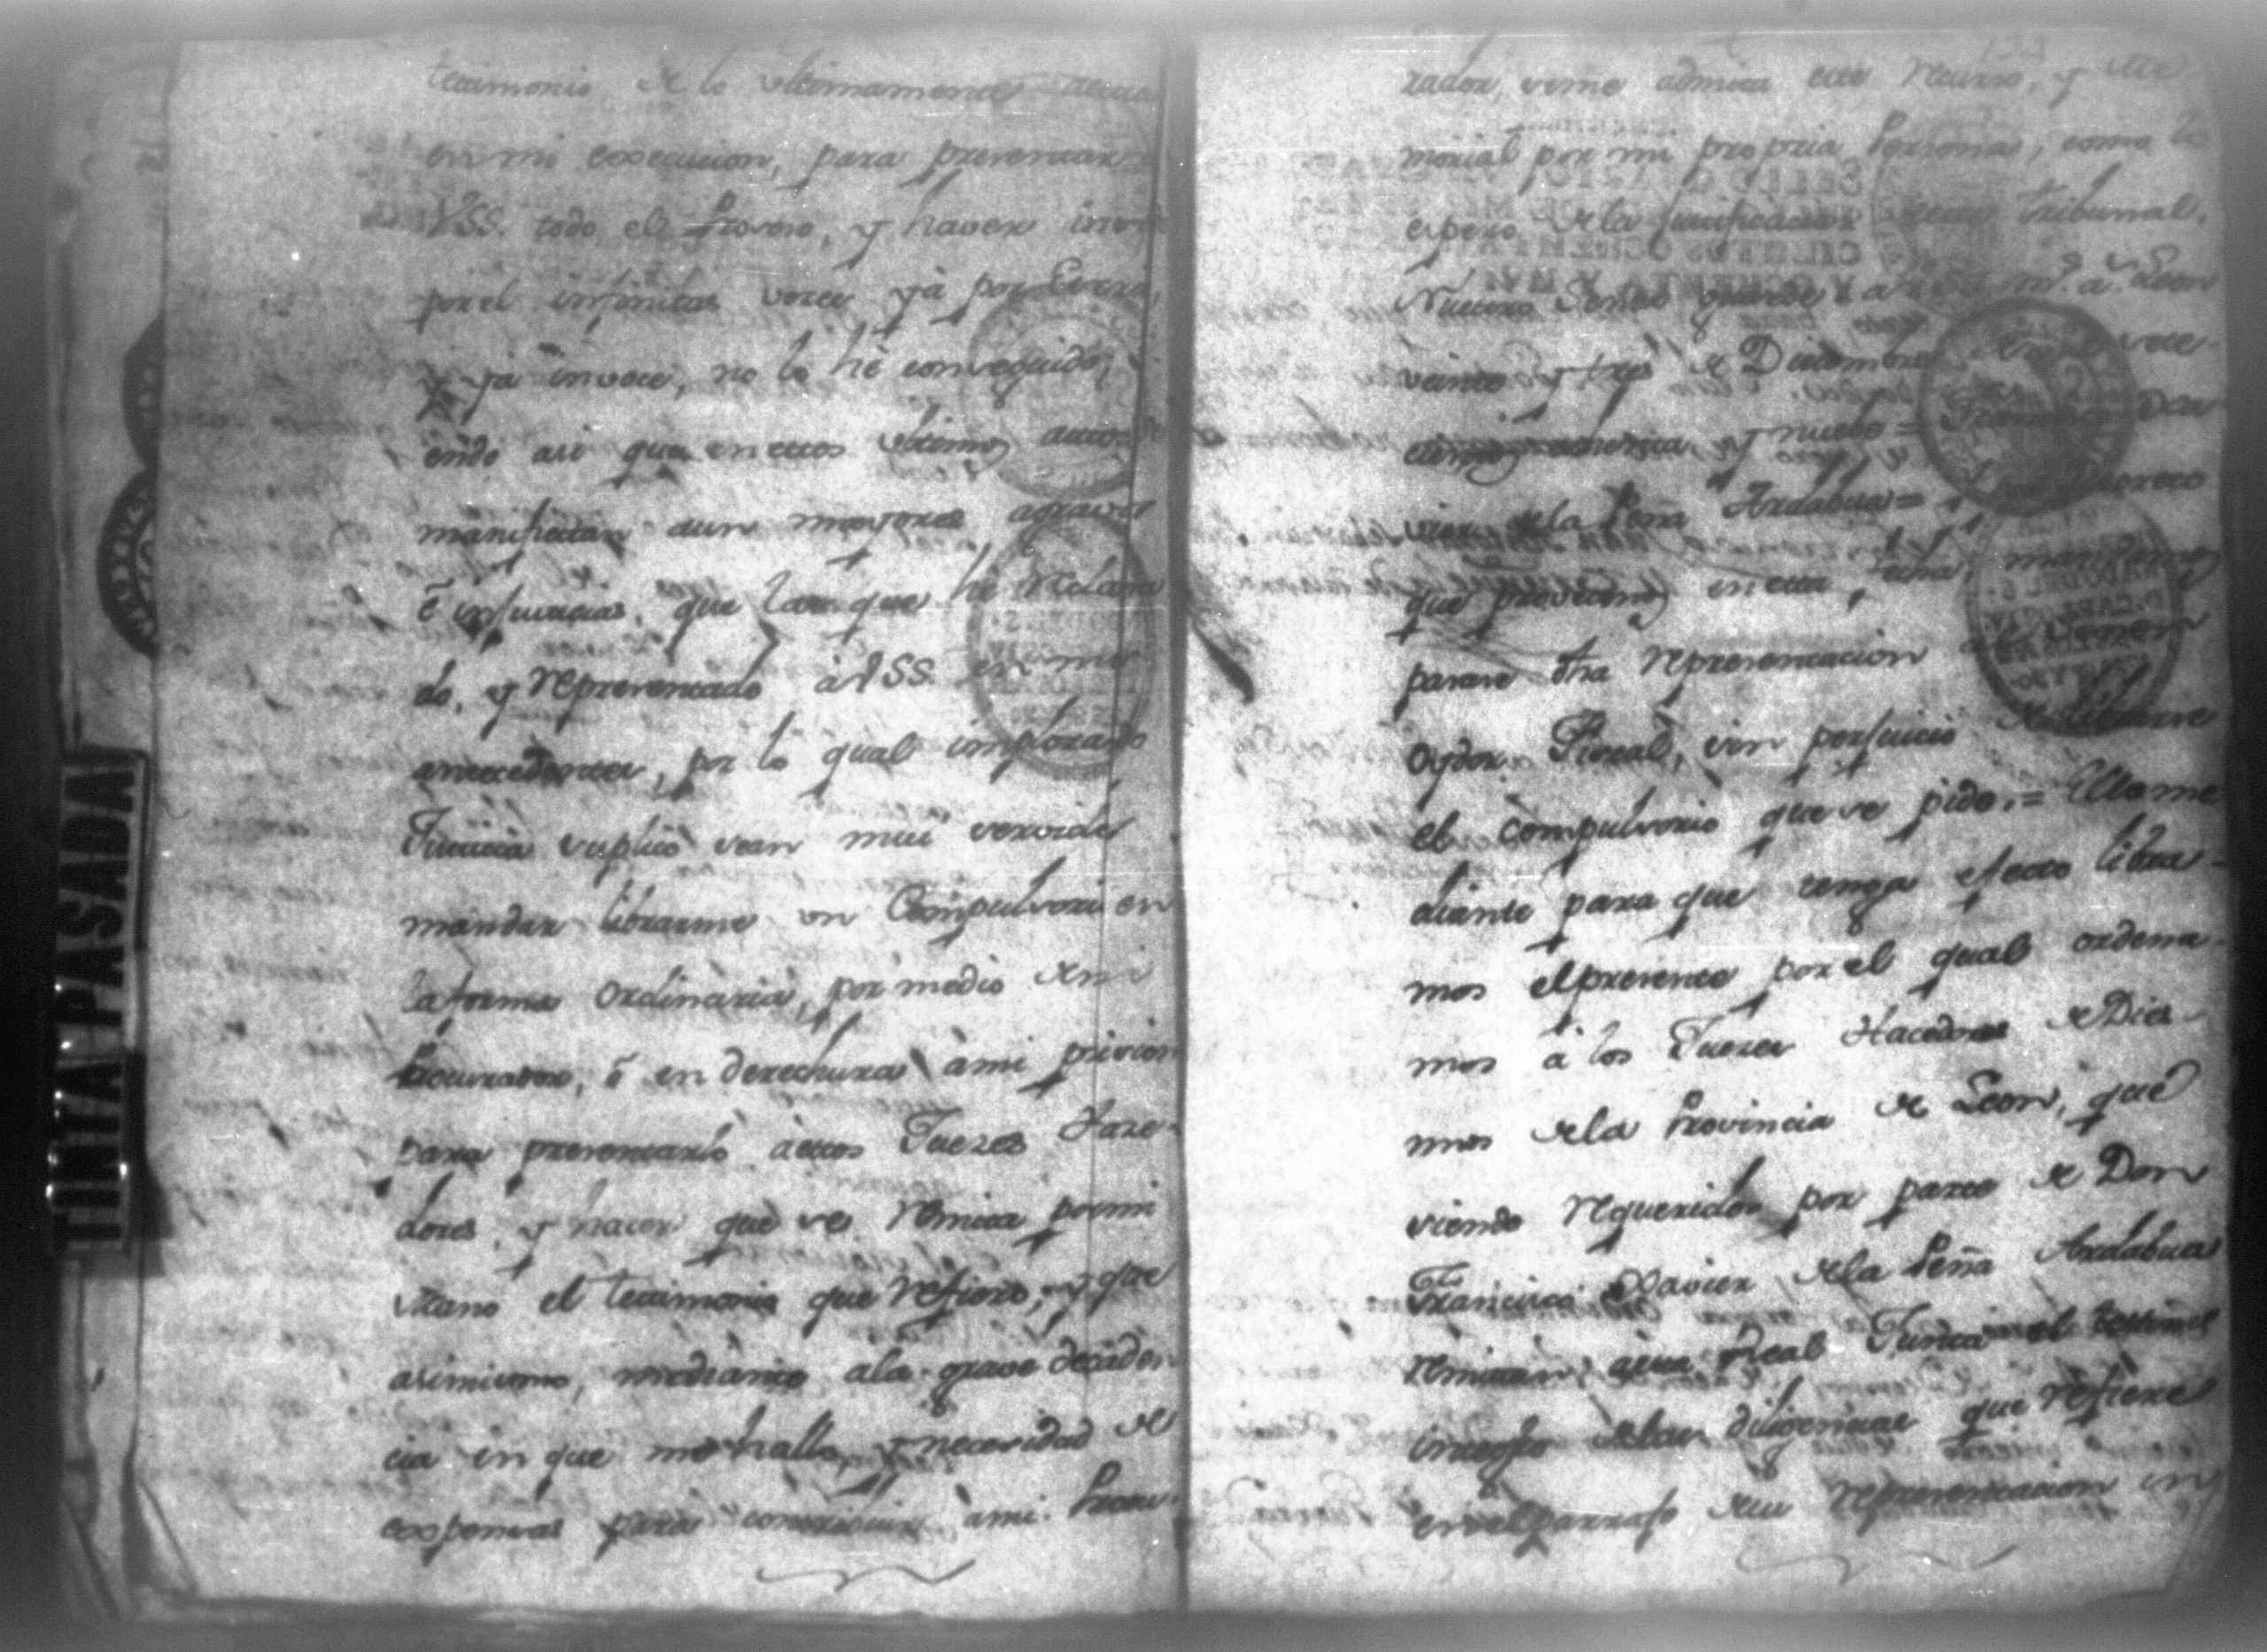 testimonio de lo ultimamente
en mi execucion, para presentar
VSS. todo el Proceso, y haver
por el infinitas veces yá por
y yá in voce, no lo hé conseguido,
endo asi que en estos ultimos autos
manifiestan aun mayores agravios
é injusticias, que las que hé reclama
do, y representado á VSS. en mis
antecedentes, por lo qual implorando
Justicia suplico sean mui servidos
mandar librarme un Compulsorio en
la forma Ordinaria, por medio de mi
Procurador, ó en derechura á mi prision
para presentarlo á estos Juezes Haze-
dores, y hacer que se remita por mi
el testimonio que refiero, y que
asimismo, mediante a la grave decaden
cia en que me hallo, y necesidad de
expensas para contribuir á mi Procu-
rador, se me admita este recurso, y
morial por mi propria Persona, como lo
espero de la justificacion Tribunal.
Nuestro Señor guarde a VSS. m.s a.s Leon
veinte y tres de Diciembre sete-
cientos ochenta y nueve = Francisco Xa
vier de la Peña Andabua = decreto
que proveimos en esta
pasase dha representacion al Señor
Oydor Fiscal, sin perjuicio de librarse
el compulsorio que se pide. =
diante para que tenga efecto libra-
mos el presente por el qual ordena-
mos á los Juezes Hacedores de Diez-
mos de la Provincia de Leon, que
siendo requeridos por parte de Don
Francisco Xavier de la Peña Andabua
remitan á esta Real Junta el testimo
de las diligencias que refiere
en el parrafo de su representacion in
TINTA PASADA